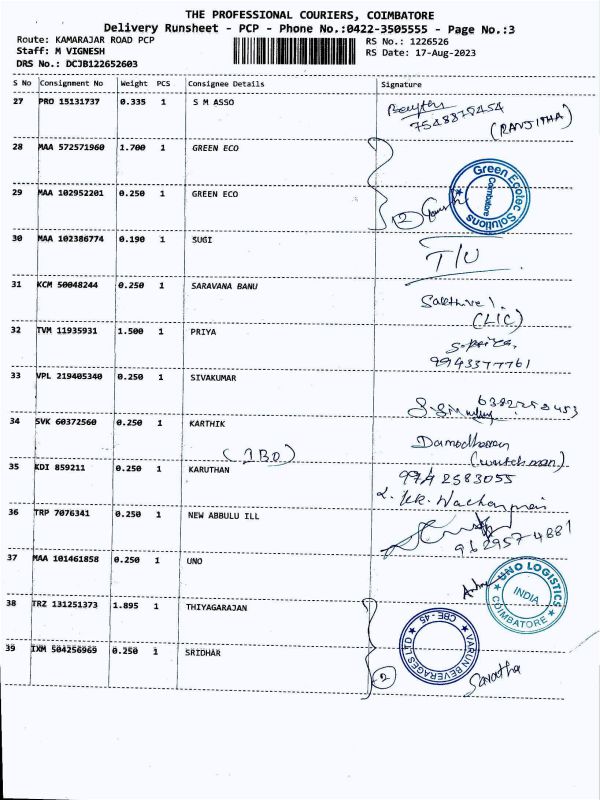 THE PROFESSIONAL COURIERS, COIMBATORE
Delivery Runsheet - PCP - Phone No.:0422-3505555 - Page No.:3
Route: KAMARAJAR ROAD PCP RS No.: 1226526
Staff: M VIGNESH RS Date: 17-Aug-2023
DRS No.: DCJB122652603
S No Consignment No Weight PCS Consignee Details Signature
27 PRO 15131737 0.335 1 S M ASSO
7548875454
(RANJITHA)
28 MAA 572571960 1.700 1 GREEN ECO
Green Ecotec Solutions
Coimbatore
29 MAA 102952201 0.250 1 GREEN ECO
2
30 MAA 102386774 0.190 1 SUGI
T/U
31 KCM 50048244 0.250 1 SARAVANA BANU
Sakthivel.
(LIC)
32 TVM 11935931 1.500 1 PRIYA
S.Priya.
9943377761
33 VPL 219405340 0.250 1 SIVAKUMAR
34 SVK 60372560 0.250 1 KARTHIK
Damodharan
(watchman)
35 KDI 859211 0.250 1 KARUTHAN
9942583055
36 TRP 7076341 0.250 1 NEW ABBULU ILL
9629574881
37 MAA 101461858 0.250 1 UNO
UNO LOGISTICS
INDIA
COIMBATORE
38 TRZ 131251373 1.895 1 THIYAGARAJAN
VARUN BEVERAGES LTD
CBE - 45
39 IXM 504256969 0.250 1 SRIDHAR
2